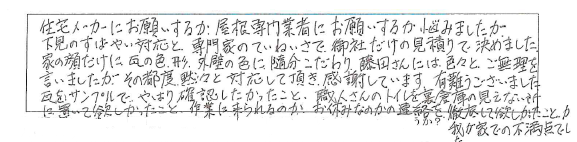 住宅メーカーにお願いするか、屋根専門業者にお願いするか悩みましたが
下見のすばやい対応と、専門家のていねいさで、御社だけの見積りで決めました。
家の顔だけに瓦の色、形、外壁の色に随分こだわり、藤田さんには色々とご無理を
言いましたがその都度、黙々と対応して頂き、感謝しています。有難うございました
瓦をサンプルで、やはり確認したかったこと、職人さんのトイレを裏倉庫の見えない所
に置いて欲しかったこと、作業に来られるのか、お休みなのかの連絡を、徹底して欲しかったことが
うか?
我が家での不満点でし
た